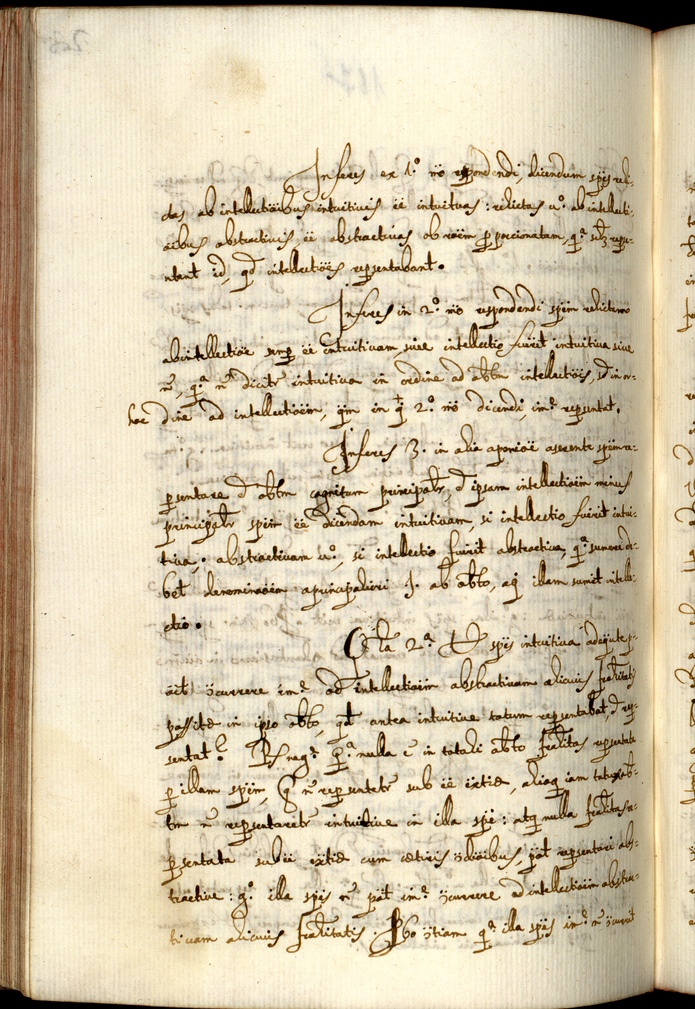 Inferes ex 1.º mõ respondendi, dicendum spẽs relic-
tas ab intellectiõibus intuitivis ẽẽ intuitivas: relictas u.º ab intellecti-
õibus abstractivis, ẽẽ abstractivas ob raõẽm proporcionatam, q.ª repre-
ntant id, qd intellectiões repsentabant.
Inferes in 2.º mõ respondendi spẽm relictam
ab intellectiõe semp ẽẽ intuitivam, sive intellectio fuerit intuitiva sive
ñ, q.ª ñ dicitr intuitiva in ordine ad obtm intellectiõis, sd in or-
hoc dine ad intellectiõem, qm in 2.º mõ dicendi, im.e repsentat.
Inferes 3. in alia opinioẽ aserente spẽm re-
psentare obtm cognitum principalr, ipsam intellectiõem minus
principalr spẽm ẽẽ dicendam intuitivam, si intellectio fuerit intui-
tiva; abstractivam u.º, si intellectio fuerit abstractiva, q.ª sumere de-
bet denominaõem a principaliori s. ab obto, a q illam sumit intelle-
ctio.
2.ª spẽs intuitiva adequate p-
õit ɔcurrere im.e ad intellectiõem abstractivam alicuis
in ipso obto, qd antea intuitive totum repsentabat, rep-
sentat? Rs neg.e q.ª nulla ẽ in totali obto repsentata
p illam spẽm, q ñ repsentetr sub ẽẽ extiæ, alias iam totum ob-
tm ñ repsentaretr intuitive in illa spẽ: atq nulla re-
psentata sub ẽẽ extiæ cum cæteris ɔdiõibus, põt repsentari abs-
tractive: g.º illa spẽs ñ põt im.e ɔcurrere ad intellectiõem abstrac-
tivam alicuis. Pbo ɔtiam q.ª illa spẽs im.e ñ ɔcurrit